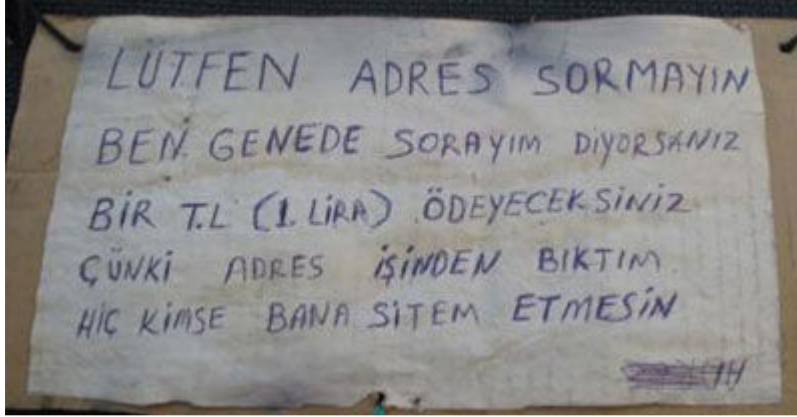 LÜTFEN ADRES SORMAYIN
BEN GENEDE SORAYIM DİYORSANIZ
BİR T.L (1. LİRA) ÖDEYECEKSİNİZ
ÇÜNKİ ADRES İŞİNDEN BIKTIM
HİÇ KİMSE BANA SİTEM ETMESİN